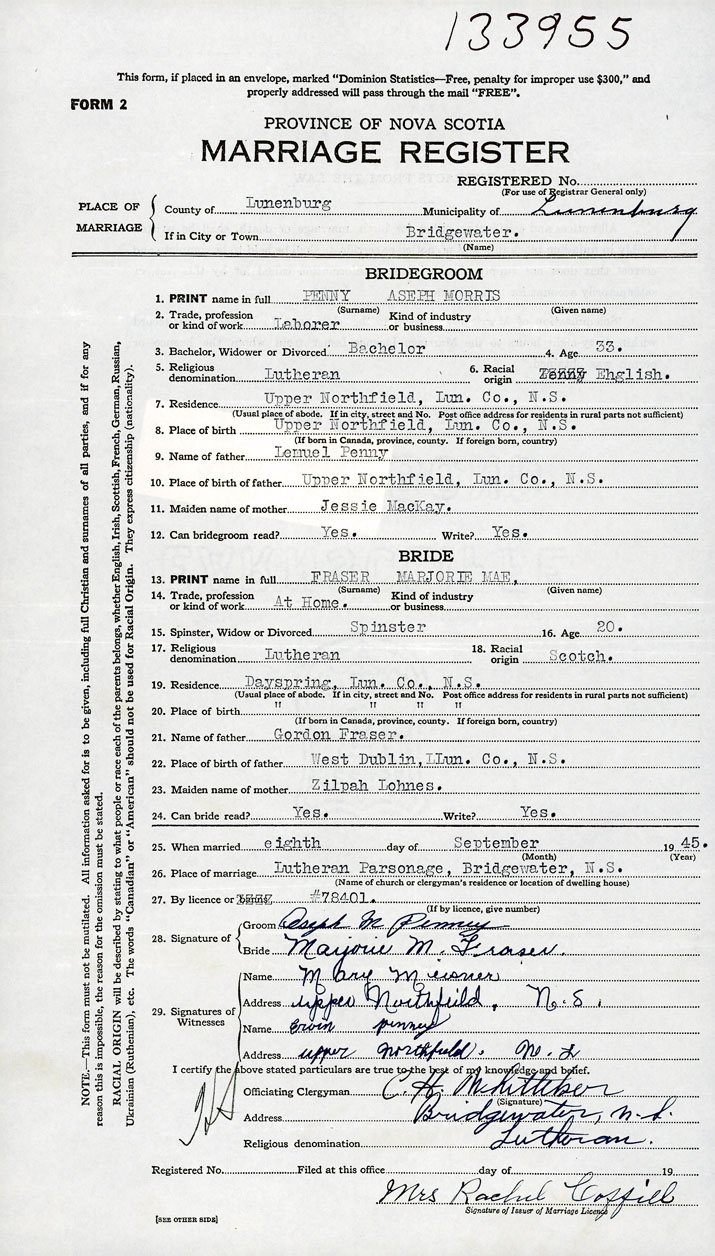 133955
This form, if placed in an envelope, marked "Dominion Statistics—Free, penalty for improper use $300," and
properly addressed will pass through the mail "FREE".
FORM 2
PROVINCE OF NOVA SCOTIA
MARRIAGE REGISTER
REGISTERED No.
(For use of Registrar General only)
PLACE OF MARRIAGE
County of Lunenburg Municipality of Lunenburg
If in City or Town Bridgewater.
(Name)
BRIDEGROOM
1. PRINT name in full PENNY ASEPH MORRIS
(Surname) (Given name)
2. Trade, profession or kind of work Laborer Kind of industry or business
3. Bachelor, Widower or Divorced Bachelor 4. Age 33.
5. Religious denomination Lutheran 6. Racial origin English.
7. Residence Upper Northfield, Lun. Co., N.S.
(Usual place of abode. If in city, street and No. Post office address for residents in rural parts not sufficient)
8. Place of birth Upper Northfield, Lun. Co., N.S.
(If born in Canada, province, county. If foreign born, country)
9. Name of father Lemuel Penny
10. Place of birth of father Upper Northfield, Lun. Co., N.S.
11. Maiden name of mother Jessie MacKay.
12. Can bridegroom read? Yes. Write? Yes.
BRIDE
13. PRINT name in full FRASER MARJORIE MAE,
(Surname) (Given name)
14. Trade, profession or kind of work At Home. Kind of industry or business
15. Spinster, Widow or Divorced Spinster 16. Age 20.
17. Religious denomination Lutheran 18. Racial origin Scotch.
19. Residence Dayspring, Lun. Co., N.S.
(Usual place of abode. If in city, street and No. Post office address for residents in rural parts not sufficient)
20. Place of birth " " " "
(If born in Canada, province, county. If foreign born, country)
21. Name of father Gordon Fraser.
22. Place of birth of father West Dublin, LLun. Co., N.S.
23. Maiden name of mother Zilpah Lohnes.
24. Can bride read? Yes. Write? Yes.
25. When married eighth day of September 1945.
(Month) (Year)
26. Place of marriage Lutheran Parsonage, Bridgewater, N.S.
(Name of church or clergyman's residence or location of dwelling house)
27. By licence or #78401.
(If by licence, give number)
28. Signature of
Groom Aseph M Penney
Bride Marjorie M. Fraser.
29. Signatures of Witnesses
Name Mary Meisner
Address upper Northfield, N.S.
Name Ervin penney
Address upper northfield. N.S
I certify the above stated particulars are true to the best of my knowledge and belief.
Officiating Clergyman C. H. Whitteker
(Signature)
Address Bridgewater, N.S.
Religious denomination Lutheran.
Registered No. Filed at this office day of 19
Mrs Rachel Coffill
Signature of Issuer of Marriage Licence
[SEE OTHER SIDE]
NOTE.—This form must not be mutilated. All information asked for is to be given, including full Christian and surnames of all parties, and if for any
reason this is impossible, the reason for the omission must be stated.
RACIAL ORIGIN will be described by stating to what people or race each of the parents belongs, whether English, Irish, Scottish, French, German, Russian,
Ukrainian (Ruthenian), etc. The words "Canadian" or "American" should not be used for Racial Origin. They express citizenship (nationality).